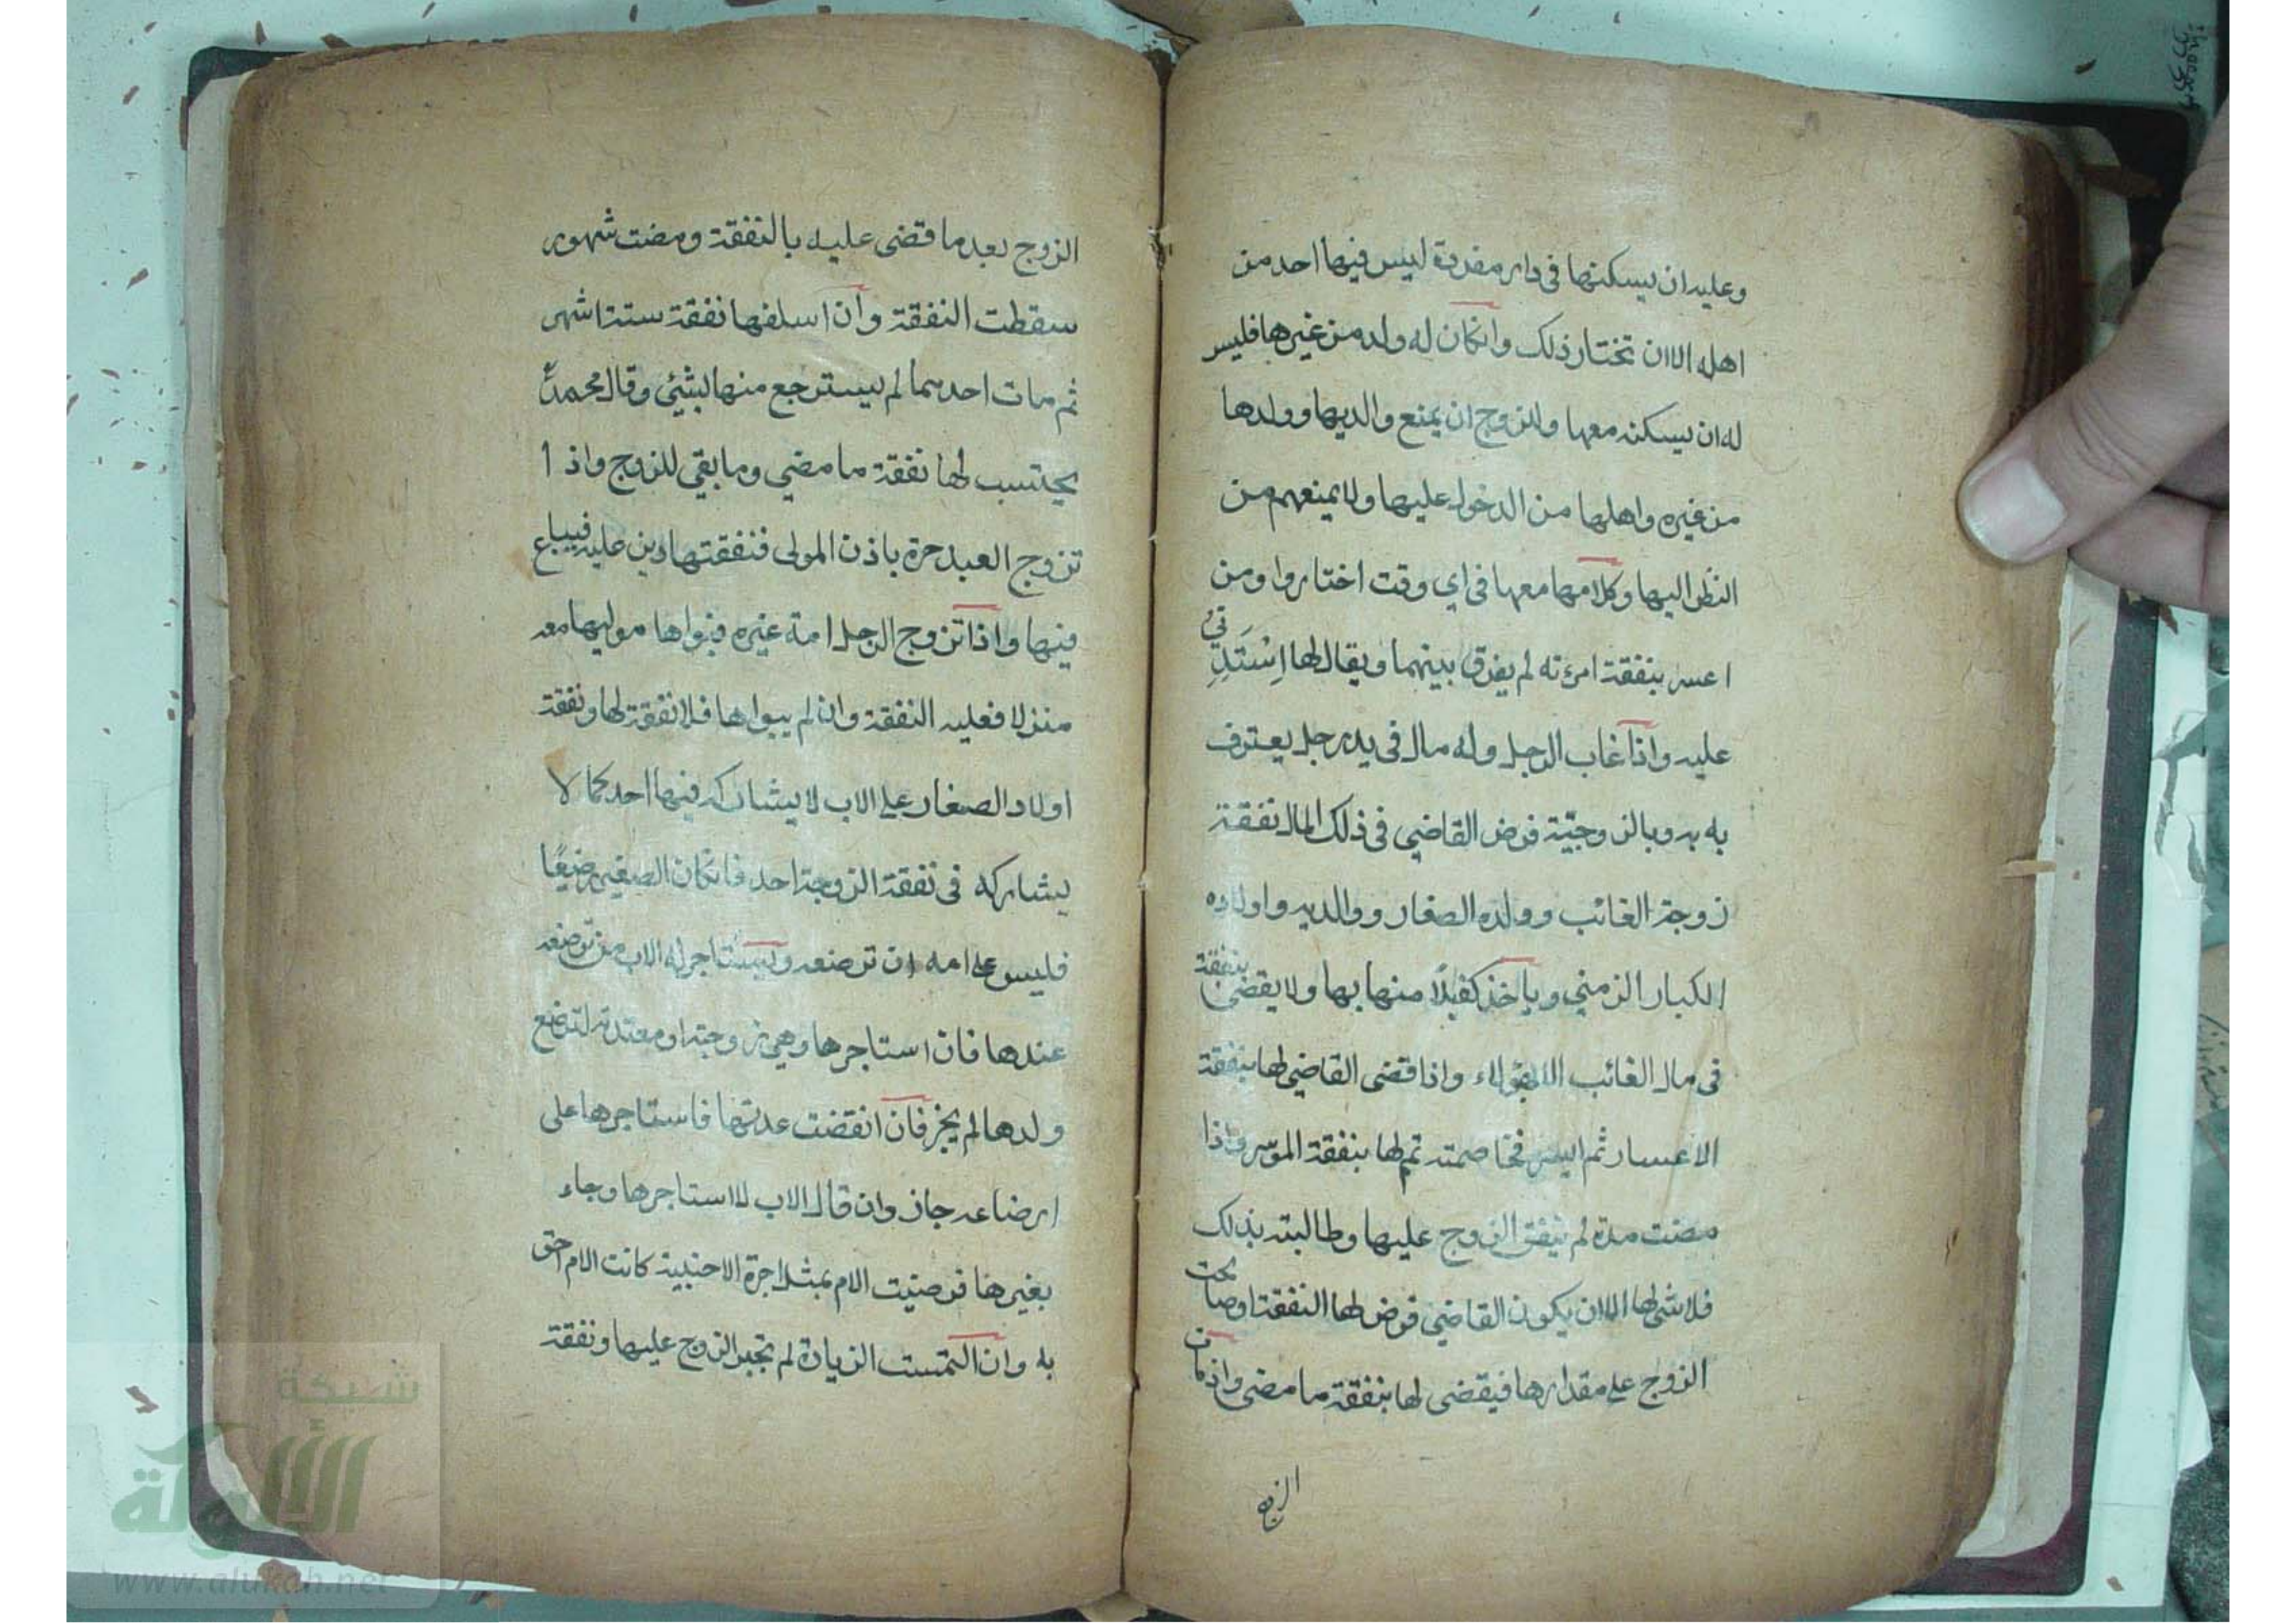 وعليه ان يسكنها فى دار مفردة ليس فيها احد من
اهله الا ان تختار ذلك وانكان له ولد من غيرها فليس
له ان يسكنه معها وللزوج ان يمنع والديها وولدها
من غيره واهلها من الدخول عليها ولا يمنعهم من
النظر اليها وكلامها معها فى اي وقت اختاروا ومن
اعسر بنفقة امرءته لم يفرق بينهما ويقال لها اِسْتَدِيني
عليه واذا غاب الرجل وله مال فى يد رجل يعترف
به به وبالزوجيّة فرض القاضي فى ذلك المال نفقة
زوجة الغائب وولده الصغار ووالديه واولاده
الكبار الزمني وياخذ كفيلًا منها بها ولا يقضى بنفقة
فى مال الغائب الا لهؤلاء واذا قضى القاضي لها بنفقة
الاعسار ثم ايسر فخاصمته تم لها بنفقة الموسر واذا
مضت مدة لم ينفق الزوج عليها وطالبته بذلك
فلا شئ لها الا ان يكون القاضي فرض لها النفقة او صالحت
الزوج على مقدارها فيقضى لها بنفقة ما مضى واذ مات
الزوج
الزوج بعد ما قضى عليه بالنفقة ومضت شهور
سقطت النفقة وان اسلفها نفقة ستة اشهر
ثم مات احدهما لم يسترجع منها بشيئ وقال محمد
يحتسب لها نفقة ما مضي وما بقي للزوج واذا
تزوج العبد حرة باذن المولى فنفقتها دين عليه فيباع
فيها واذا تزوج الرجل امة غيره فبواها موليها معه
منزلا فعليه النفقة وان لم يبواها فلا نفقة لها ونفقة
اولاد الصغار على الاب لا يشاركه فيها احد كما لا
يشاركه فى نفقة الزوجة احد فانكان الصغير رضيعًا
فليس على امه ان ترضعه ويستاجر له الاب من ترضعه
عندها فان استاجرها وهي زوجته او معتدته لترضع
ولدها لم يجز فان انقضت عدتها فاستاجرها على
ارضاعه جاز وان قال الاب لا استاجرها وجاء
بغيرها فرضيت الام بمثل اجرة الاجنبية كانت الام احق
به وان التمست الزيادة لم تجبر الزوج عليها ونفقة
شبكة
الألوكة
www.alukah.net